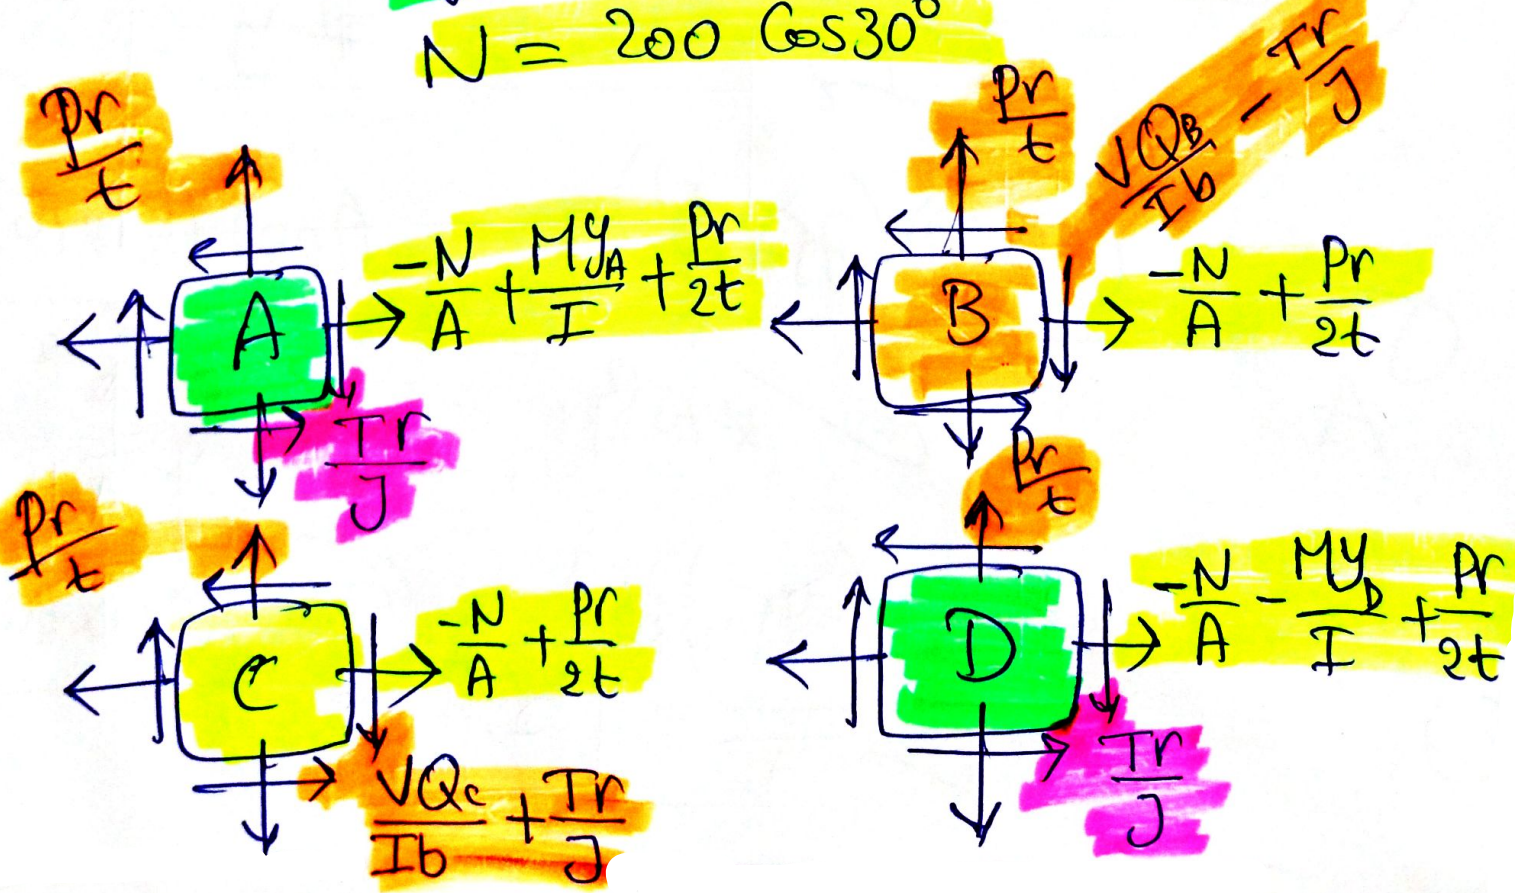 N = 200 Cos30°
Pr/t
-N/A + MyA/I + Pr/2t
A
Tr/J
Pr/t
VQB/Ib - Tr/J
-N/A + Pr/2t
B
Pr/t
-N/A + Pr/2t
C
VQc/Ib + Tr/J
Pr/t
-N/A - MyD/I + Pr/2t
D
Tr/J